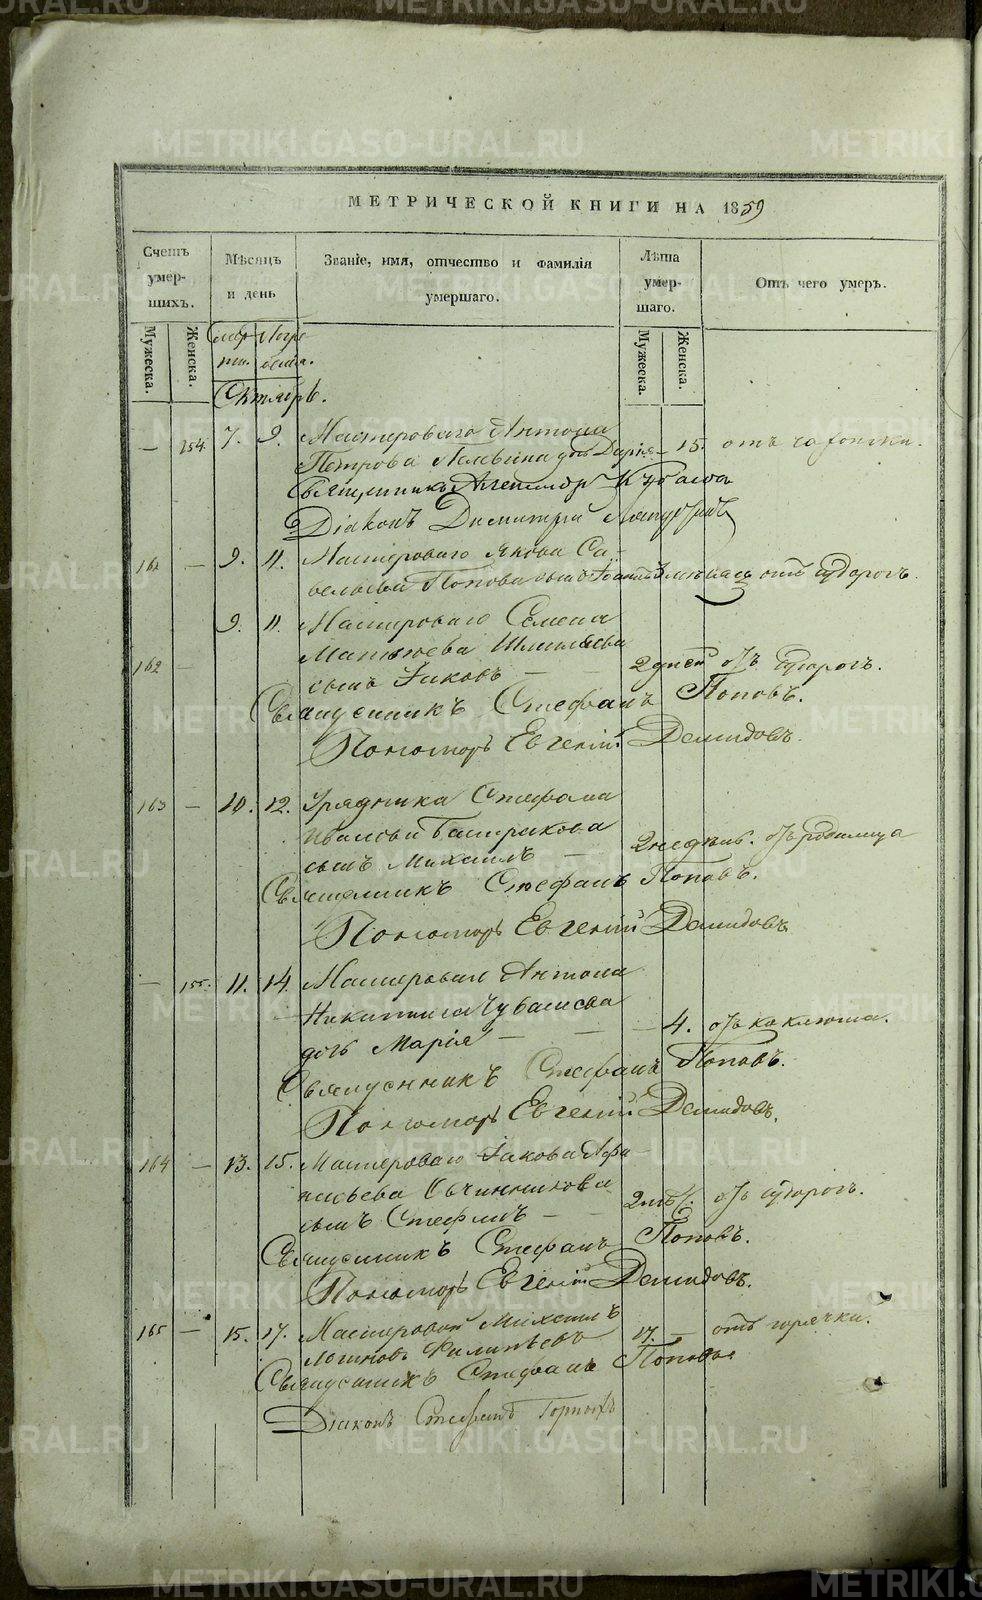 МЕТРИЧЕСКОЙ КНИГИ НА 1859
Счетъ умер-шихъ.
Мѣсяцъ и день
Званіе, имя, отчество и фамилія умершаго.
Лѣта умер-шаго.
Отъ чего умеръ.
Мужеска.
Женска.
Мужеска.
Женска.
Октябрь.
— 154. 7. 9. Мастероваго Антона
Петрова дочь Дарія — 15. отъ чахотки.
Священникъ Александръ
Діаконъ Димитрій
161 — 9. 11. Мастероваго Якова Са-
вельева Попова сынъ отъ судорогъ.
9. 11. Мастероваго Семена
162 — Матвѣева сынъ Іаковъ — 2 дней отъ судорогъ.
Священникъ Стефанъ Поповъ.
Пономарь Евгеній Демидовъ.
163 — 10. 12. Урядника Стефана
сынъ Михаилъ — 2 недѣль. отъ родимца
Священникъ Стефанъ Поповъ.
Пономарь Евгеній Демидовъ
— 155. 11. 14. Мастероваго Антона
Никитина Чувашева
дочь Марія — — 4. отъ коклюша.
Священникъ Стефанъ Поповъ.
Пономарь Евгеній Демидовъ.
164 — 13. 15. Мастероваго Іакова Афа-
насьева Овчинникова
сынъ Стефанъ — отъ судорогъ.
Священникъ Стефанъ Поповъ.
Пономарь Евгеній Демидовъ.
165 — 15. 17. Мастеровой Михаилъ
Логиновъ Филипьевъ 17. — отъ горячки.
Священникъ Стефанъ Поповъ
Діаконъ Стефанъ
METRIKI.GASO-URAL.RU